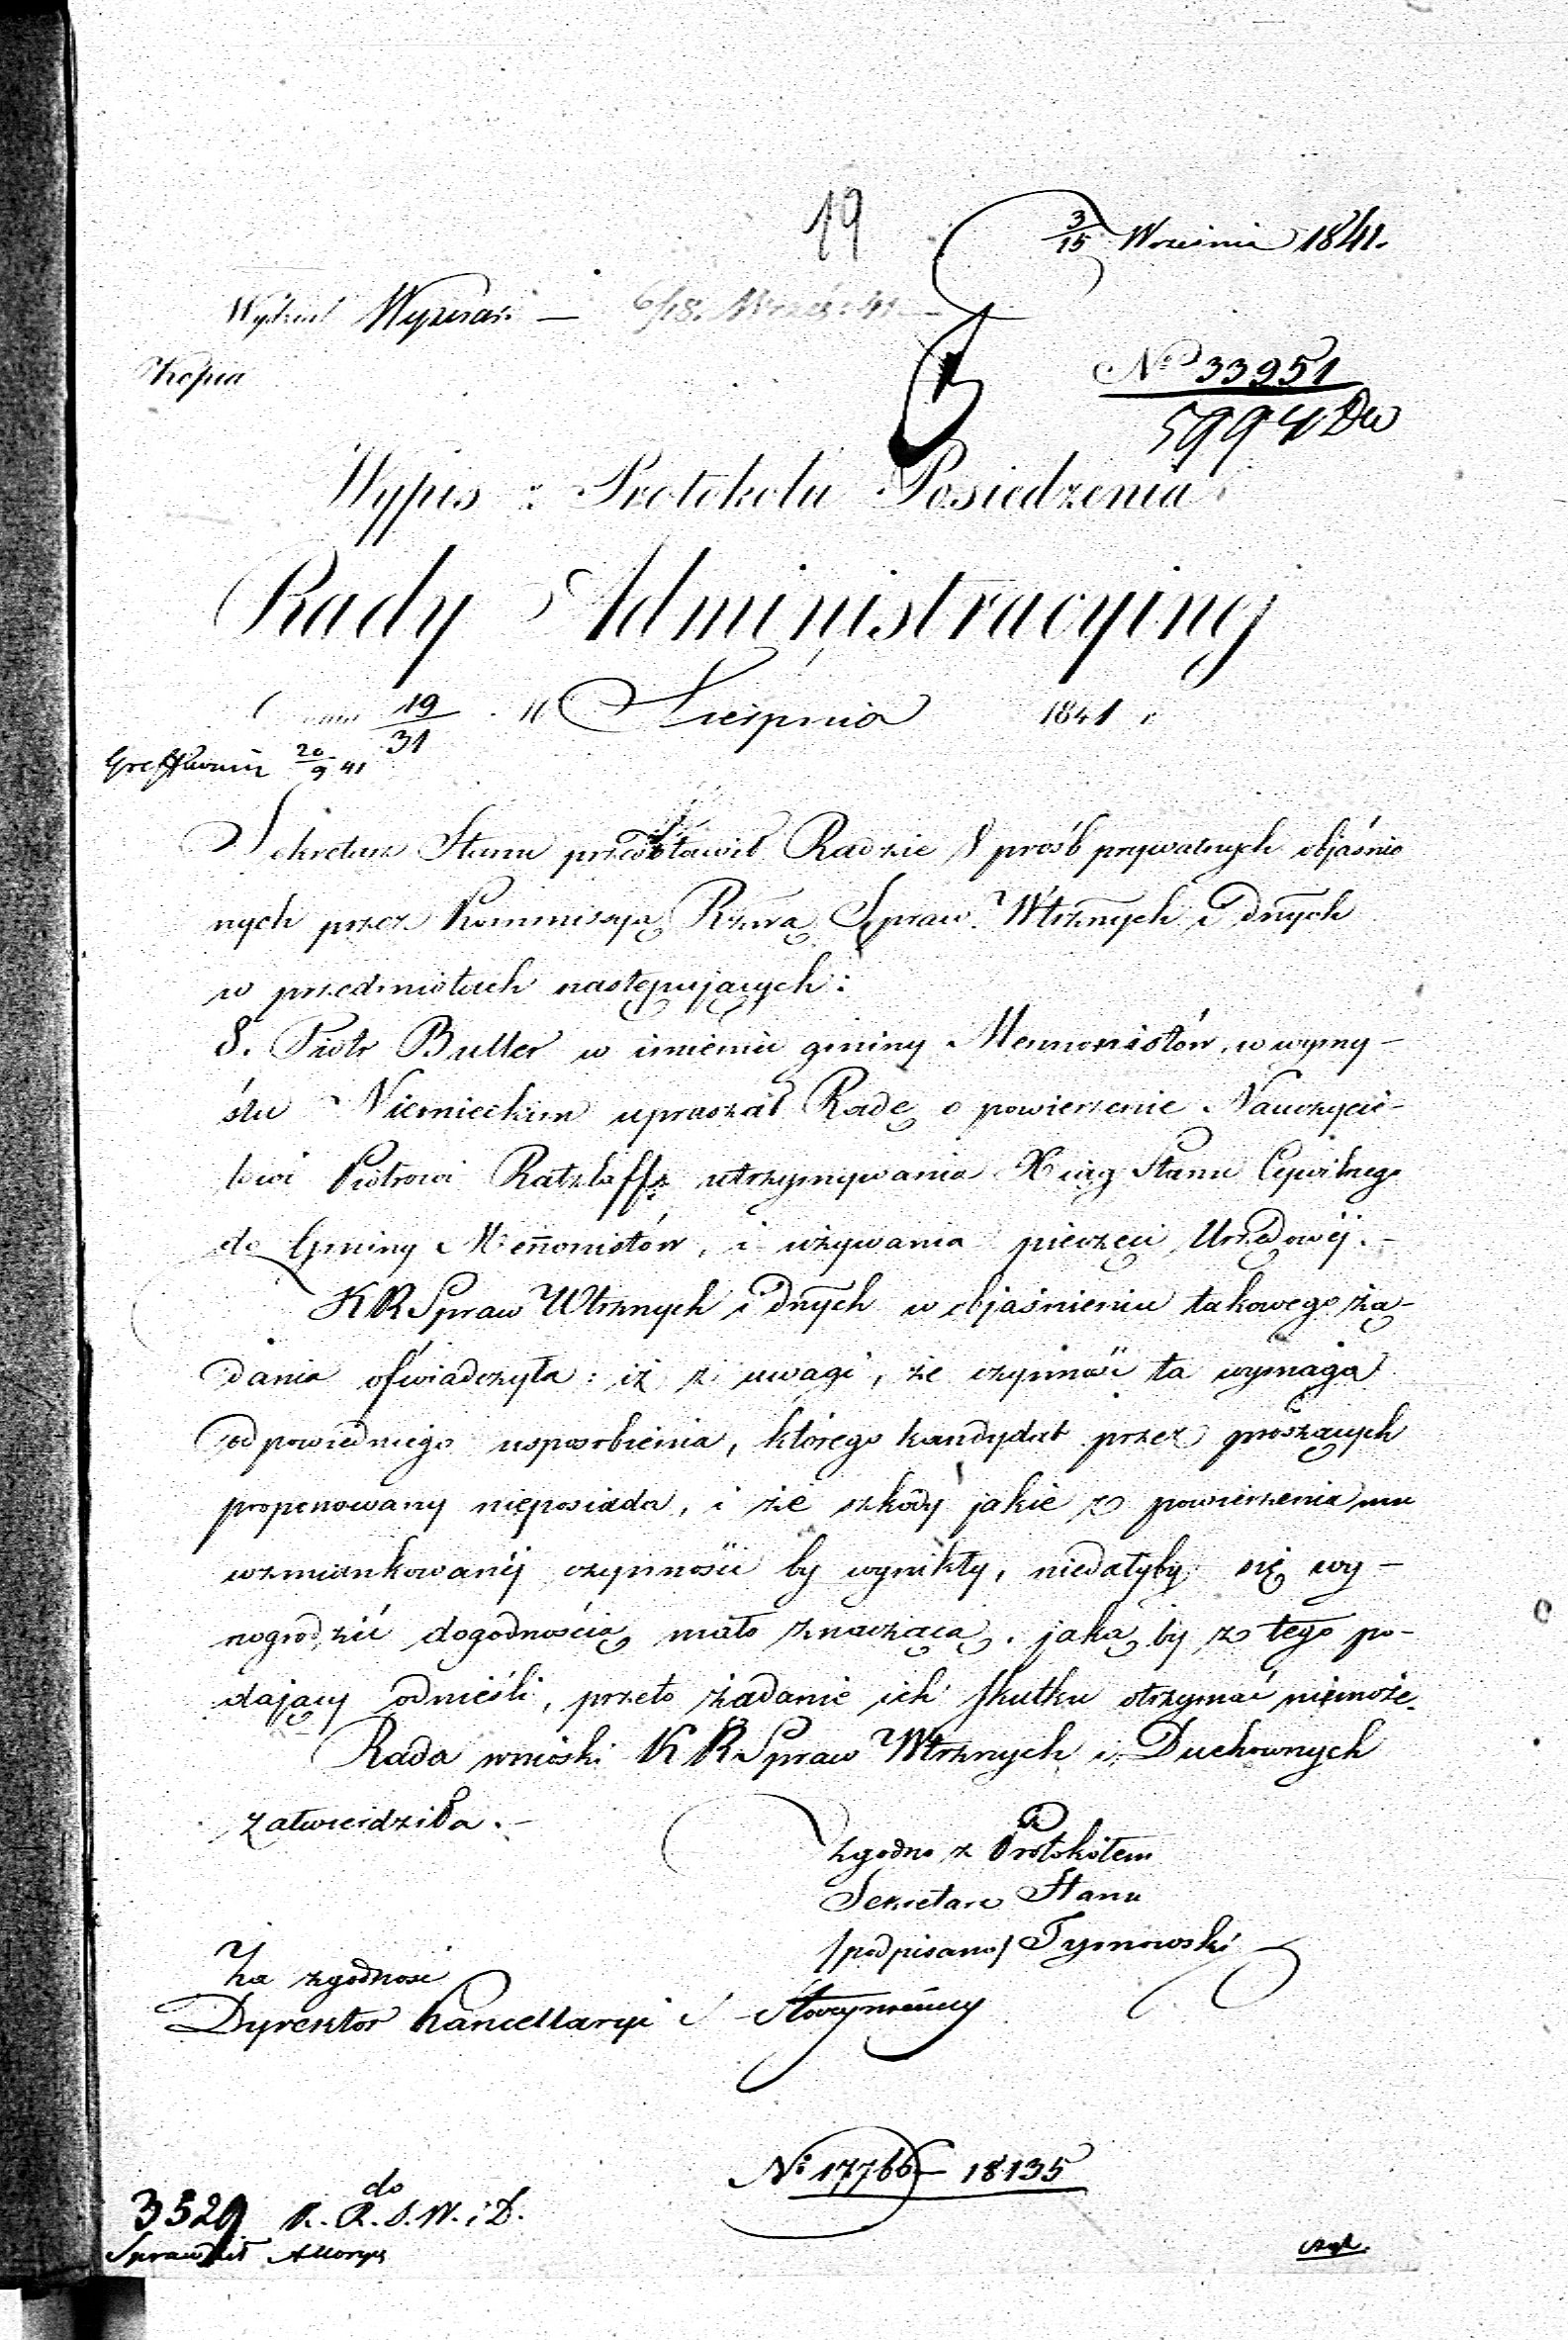 19
3/15 Września 1841.
Wydział Wyznań — 6/18. Wrześ: 41
Kopia
No 33951
5994 Dw
Wypis z Protokołu Posiedzenia
Rady Administracyinej
dnia 19/31 Sierpnia 1841 r
20/9 41
Sekretarz Stanu przedstawił Radzie 8 prośb prywatnych objaśnio
nych przez Kommissyą Rzwą Spraw Wtrznych i Dnych
w przedmiotach następujących:
8. Piotr Buller w imieniu gminy Mennonistów, w wymy-
ślu Niemieckim upraszał Radę o powierzenie Nauczycie-
lowi Piotrowi Ratzlaff utrzymywania Xiąg Stanu Cywilnego
do Gminy Mennonistów, i używania pieczęci Urzędowéj.-
KRSpraw Wtrznych i Dnych w objaśnieniu takowego żą-
dania oświadczyła: iż z uwagi, że czynność ta wymaga
odpowiedniego usposobienia, którego kandydat przez proszących
proponowany nieposiada, i że szkody jakie z powierzenia mu
wzmiankowanéj czynności by wynikły, niedałyby się wy-
nogrodzić dogodnością mało znaczącą, jaką by z tego po-
dający odnieśli, przeto żądanie ich skutku otrzymać niemoże.
Rada wnioski KRSpraw Wtrznych i Duchownych
zatwierdziła.-
Zgodno z Protokółem
Sekretarz Stanu
/podpisano/ Tymowski
Za zgodność
Dyrektor Kancellaryi
No 17766 — 18135
3529 do K.R.S.W. i D.
Sprawdził